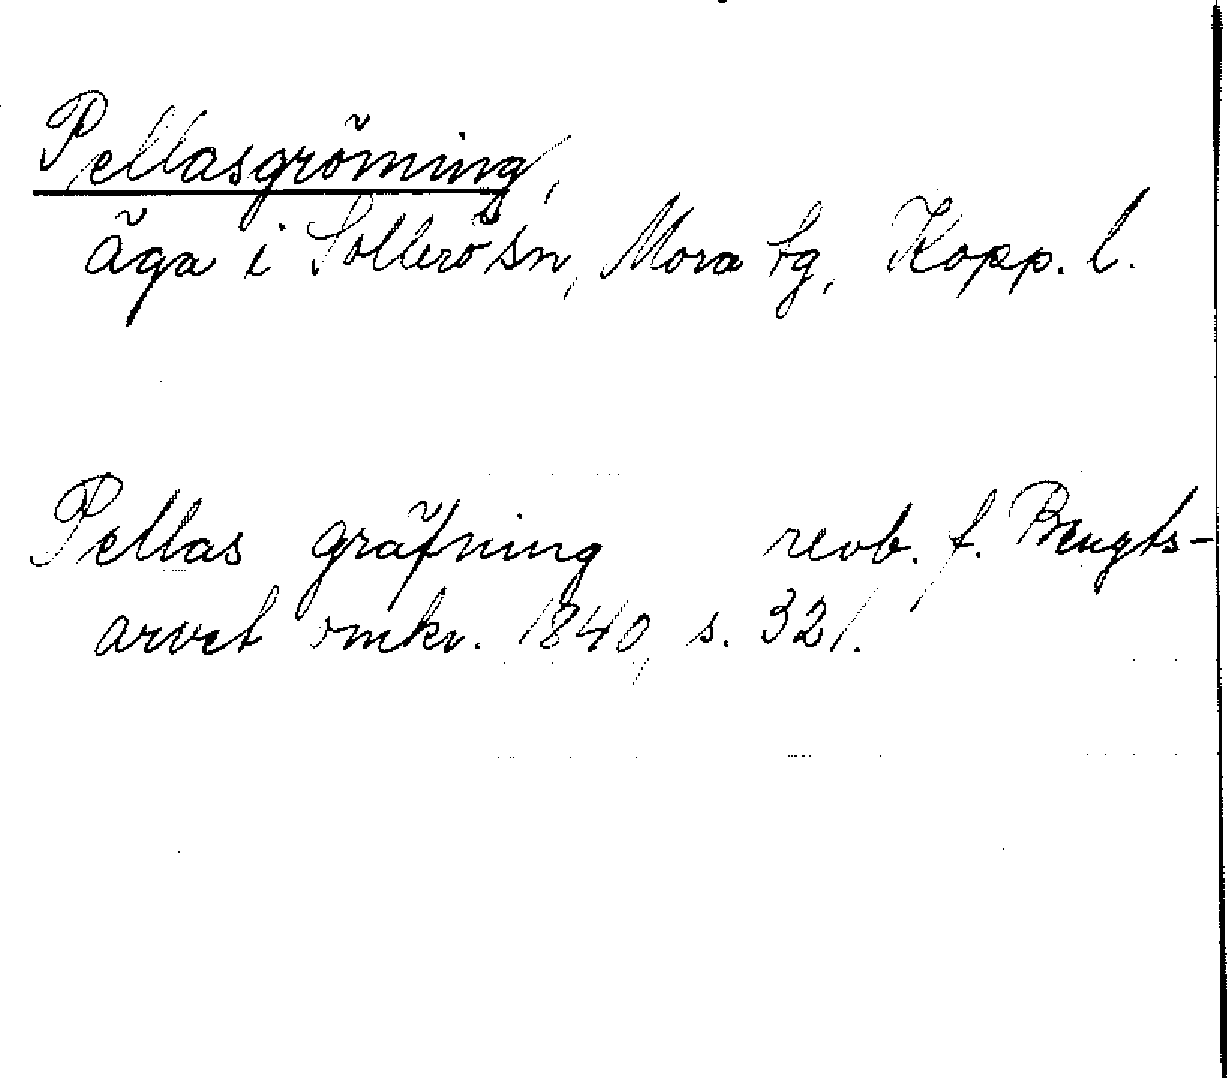 Pellasgröming,
äga i Sollerö sn, Mora tg, Kopp. l.
Pellas gräfning revb. f. Bengts-
arvet omkr. 1840, s. 321.